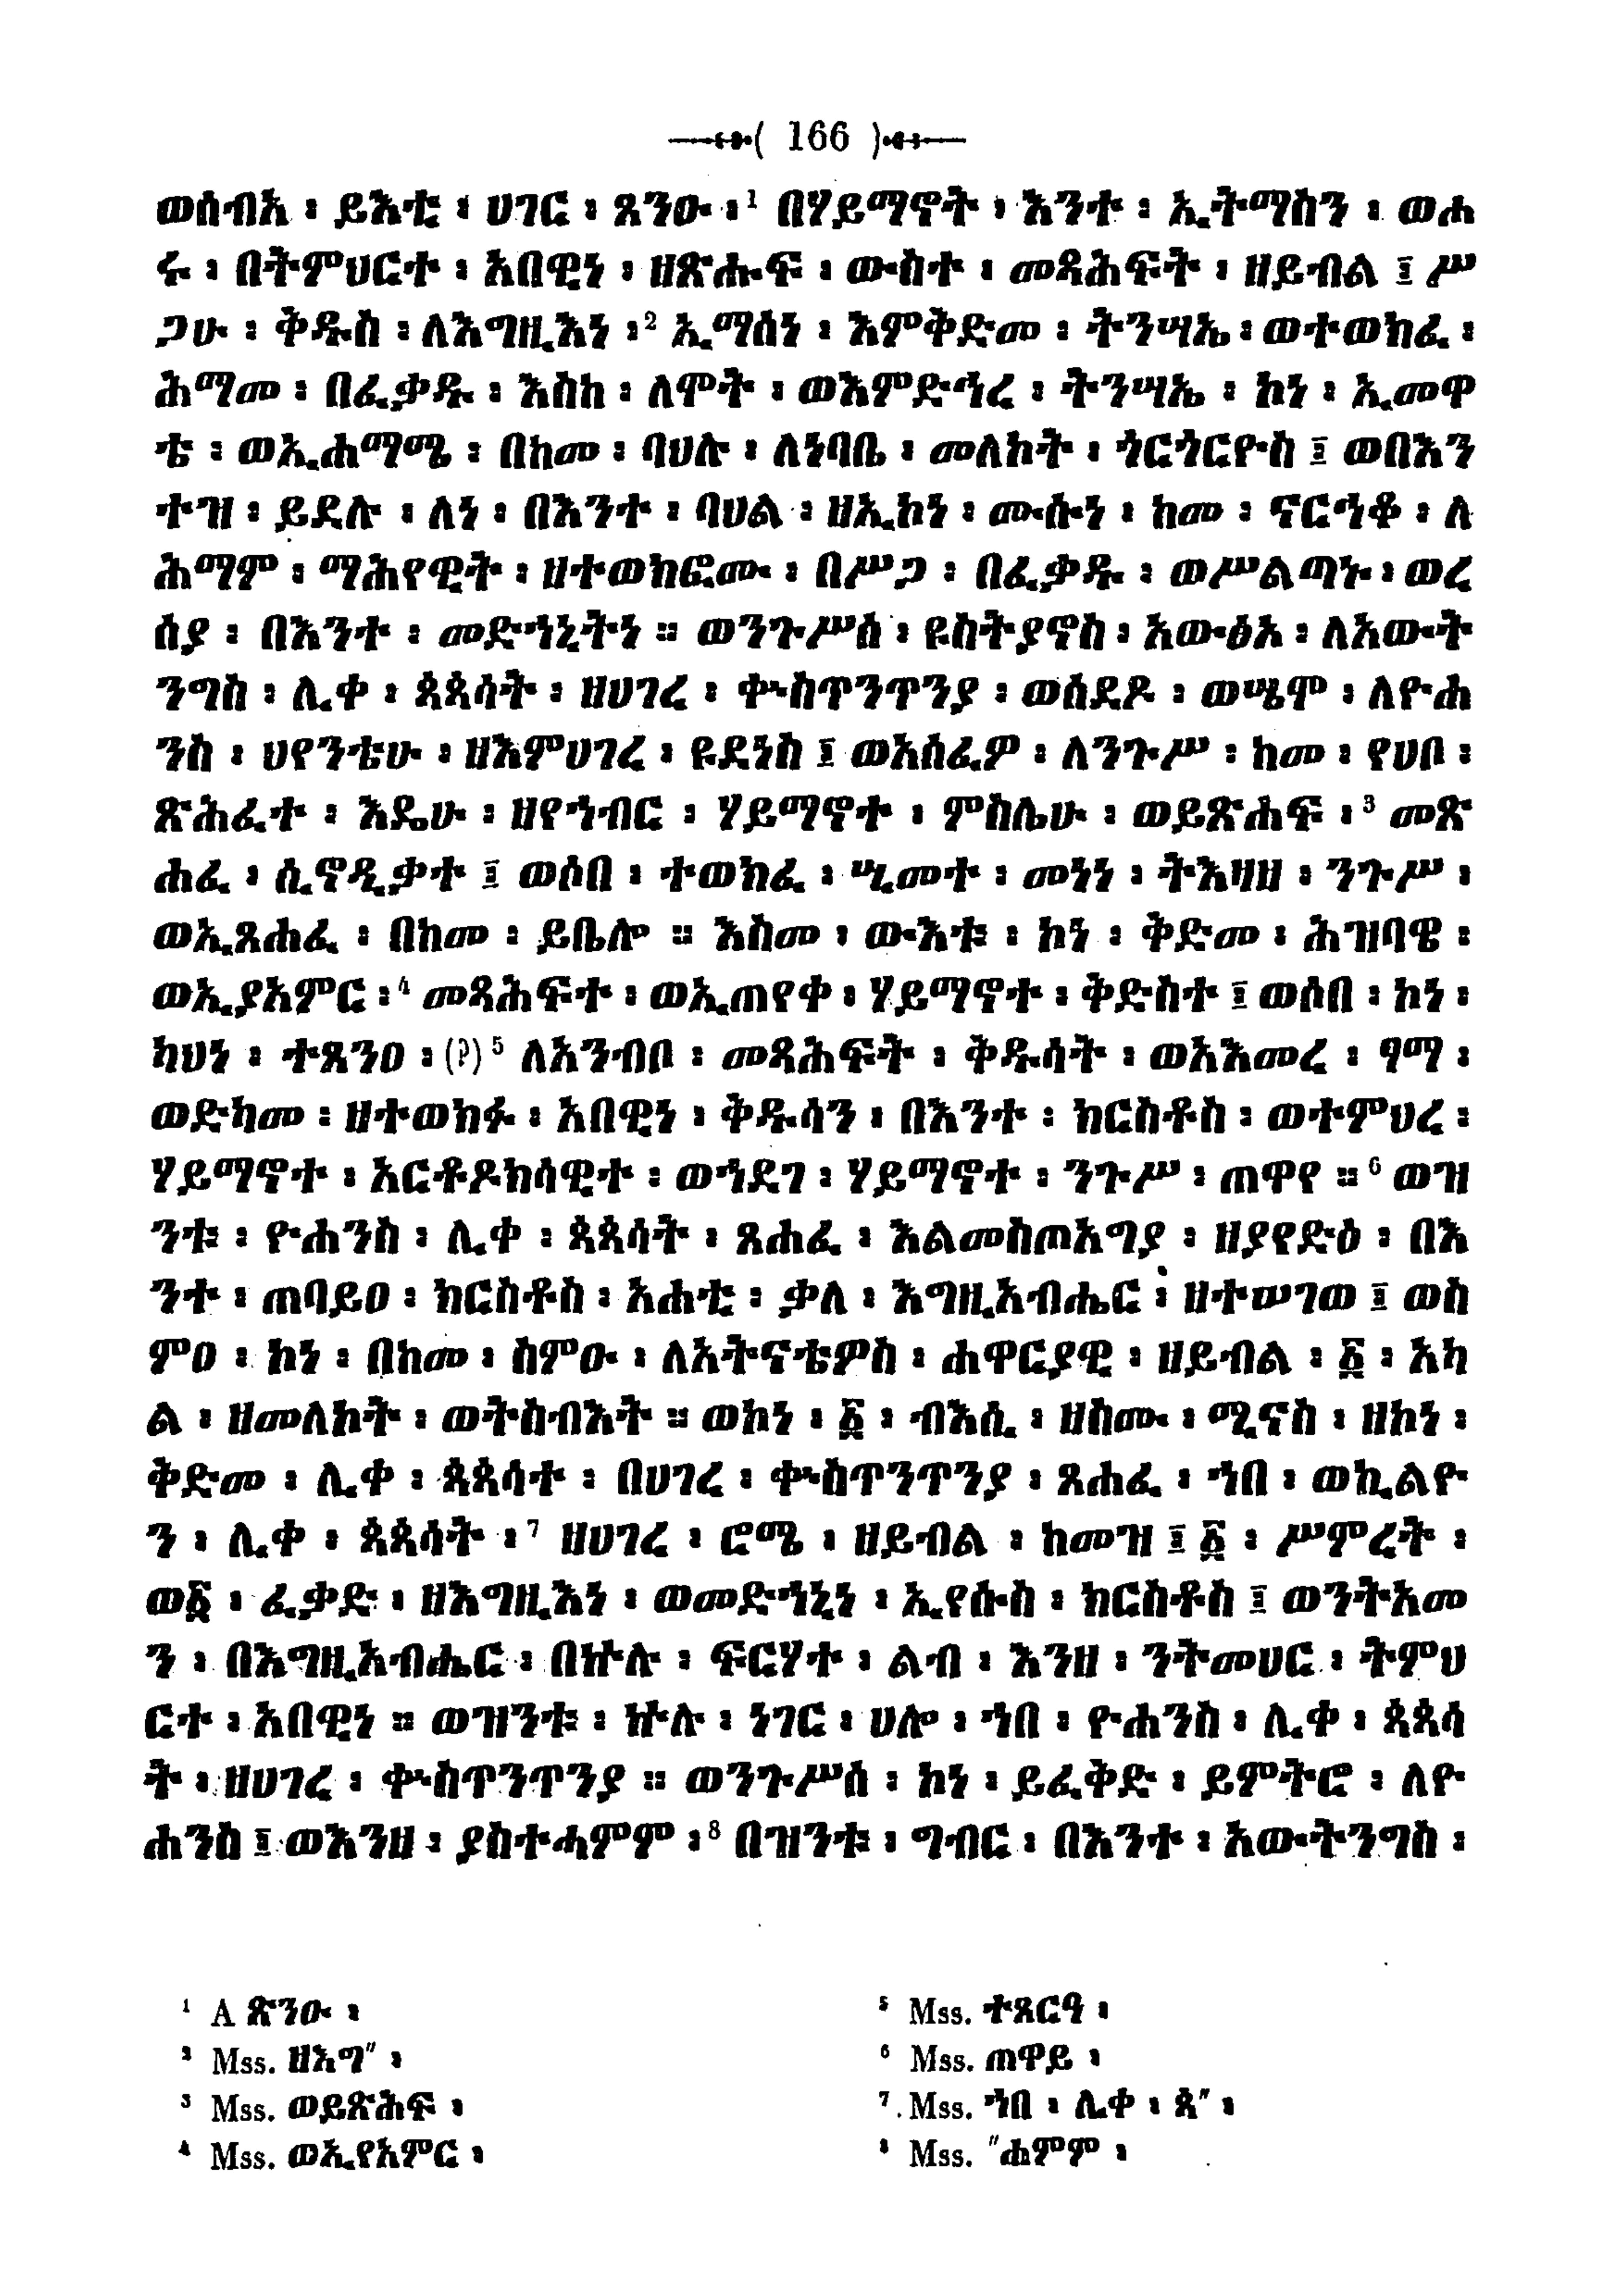 ( 166 )
ወሰብአ ፡ ይእቲ ፡ ሀገር ፡ ጸንዑ ፡¹ በሃይማኖት ፡ እንተ ፡ ኢትማስን ፡ ወሐ
ሩ ፡ በትምህርተ ፡ አበዊነ ፡ ዘጽሑፍ ፡ ውስተ ፡ መጻሕፍት ፡ ዘይብል ፤ ሥ
ጋሁ ፡ ቅዱስ ፡ ለእግዚእነ ፡² ኢማሰነ ፡ እምቅድመ ፡ ትንሣኤ ፡ ወተወክፈ ፡
ሕማመ ፡ በፈቃዱ ፡ እስከ ፡ ለሞት ፡ ወእምድኅረ ፡ ትንሣኤ ፡ ኮነ ፡ ኢመዋ
ቴ ፡ ወኢሐማሜ ፡ በከመ ፡ ባህሉ ፡ ለነባቤ ፡ መለኮት ፡ ጎርጎርዮስ ፤ ወበእን
ተዝ ፡ ይደሉ ፡ ለነ ፡ በእንተ ፡ ባህል ፡ ዘኢኮነ ፡ ሙሱነ ፡ ከመ ፡ ናርኅቆ ፡ ለ
ሕማም ፡ ማሕየዊት ፡ ዘተወክፎሙ ፡ በሥጋ ፡ በፈቃዱ ፡ ወሥልጣኑ ፡ ወረ
ሰያ ፡ በእንተ ፡ መድኀኒትነ ። ወንጉሥሰ ፡ ዩስትያኖስ ፡ አውፅአ ፡ ለአውት
ንግስ ፡ ሊቀ ፡ ጳጳሳት ፡ ዘሀገረ ፡ ቍስጥንጥንያ ፡ ወሰደዶ ፡ ወሤሞ ፡ ለዮሐ
ንስ ፡ ህየንቴሁ ፡ ዘእምሀገረ ፡ ዩደነስ ፤ ወአሰፈዎ ፡ ለንጉሥ ፡ ከመ ፡ የሀበ ፡
ጽሕፈተ ፡ እዴሁ ፡ ዘየኀብር ፡ ሃይማኖተ ፡ ምስሌሁ ፡ ወይጽሐፍ ፡³ መጽ
ሐፈ ፡ ሲኖዲቃተ ፤ ወሶበ ፡ ተወክፈ ፡ ሢመተ ፡ መነነ ፡ ትእዛዘ ፡ ንጉሥ ፡
ወኢጸሐፈ ፡ በከመ ፡ ይቤሎ ። እስመ ፡ ውእቱ ፡ ኮነ ፡ ቅድመ ፡ ሕዝባዌ ፡
ወኢያአምር ፡⁴ መጻሕፍተ ፡ ወኢጠየቀ ፡ ሃይማኖተ ፡ ቅድስተ ፤ ወሶበ ፡ ኮነ ፡
ካህነ ፡ ተጸንዐ ፡ (?)⁵ ለአንብቦ ፡ መጻሕፍት ፡ ቅዱሳት ፡ ወአእመረ ፡ ፃማ ፡
ወድካመ ፡ ዘተወክፉ ፡ አበዊነ ፡ ቅዱሳን ፡ በእንተ ፡ ክርስቶስ ፡ ወተምህረ ፡
ሃይማኖተ ፡ አርቶዶክሳዊተ ፡ ወኀደገ ፡ ሃይማኖተ ፡ ንጉሥ ፡ ጠዋየ ።⁶ ወዝ
ንቱ ፡ ዮሐንስ ፡ ሊቀ ፡ ጳጳሳት ፡ ጸሐፈ ፡ እልመስጦአግያ ፡ ዘያየድዕ ፡ በእ
ንተ ፡ ጠባይዐ ፡ ክርስቶስ ፡ አሐቲ ፡ ቃለ ፡ እግዚአብሔር ፡ ዘተሠገወ ፤ ወስ
ምዐ ፡ ኮነ ፡ በከመ ፡ ስምዑ ፡ ለአትናቴዎስ ፡ ሐዋርያዊ ፡ ዘይብል ፡ ፩ ፡ አካ
ል ፡ ዘመለኮት ፡ ወትስብእት ። ወኮነ ፡ ፩ ፡ ብእሲ ፡ ዘስሙ ፡ ሚናስ ፡ ዘኮነ ፡
ቅድመ ፡ ሊቀ ፡ ጳጳሳተ ፡ በሀገረ ፡ ቍስጥንጥንያ ፡ ጸሐፈ ፡ ኀበ ፡ ወኪልዮ
ን ፡ ሊቀ ፡ ጳጳሳት ፡⁷ ዘሀገረ ፡ ሮሜ ፡ ዘይብል ፡ ከመዝ ፤ ፩ ፡ ሥምረት ፡
ወ፩ ፡ ፈቃድ ፡ ዘእግዚእነ ፡ ወመድኀኒነ ፡ ኢየሱስ ፡ ክርስቶስ ፤ ወንትአመ
ን ፡ በእግዚአብሔር ፡ በኵሉ ፡ ፍርሃተ ፡ ልብ ፡ እንዘ ፡ ንትመሀር ፡ ትምህ
ርተ ፡ አበዊነ ። ወዝንቱ ፡ ኵሉ ፡ ነገር ፡ ሀሎ ፡ ኀበ ፡ ዮሐንስ ፡ ሊቀ ፡ ጳጳሳ
ት ፡ ዘሀገረ ፡ ቍስጥንጥንያ ። ወንጉሥሰ ፡ ኮነ ፡ ይፈቅድ ፡ ይምትሮ ፡ ለዮ
ሐንስ ፤ ወእንዘ ፡ ያስተሓምም ፡⁸ በዝንቱ ፡ ግብር ፡ በእንተ ፡ አውትንግስ ፡
¹ A ጽንዑ ፡
² Mss. ዘእግ″ ፡
³ Mss. ወይጽሕፍ ፡
⁴ Mss. ወኢየአምር ፡
⁵ Mss. ተጸርዓ ፡
⁶ Mss. ጠዋይ ፡
⁷ Mss. ኀበ ፡ ሊቀ ፡ ጳ″ ፡
⁸ Mss. ″ሐምም ፡